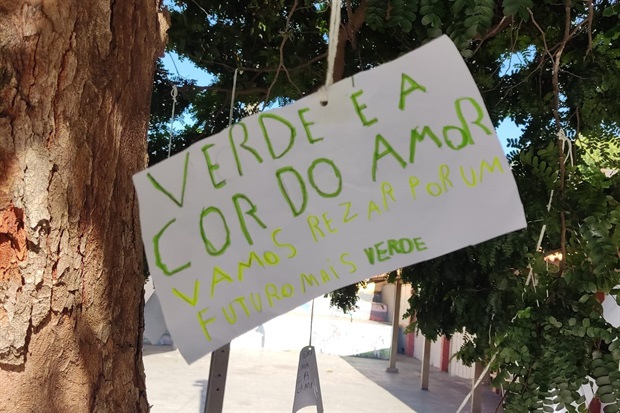 VERDE É A
COR DO AMOR
VAMOS REZAR POR UM
FUTURO MAIS VERDE